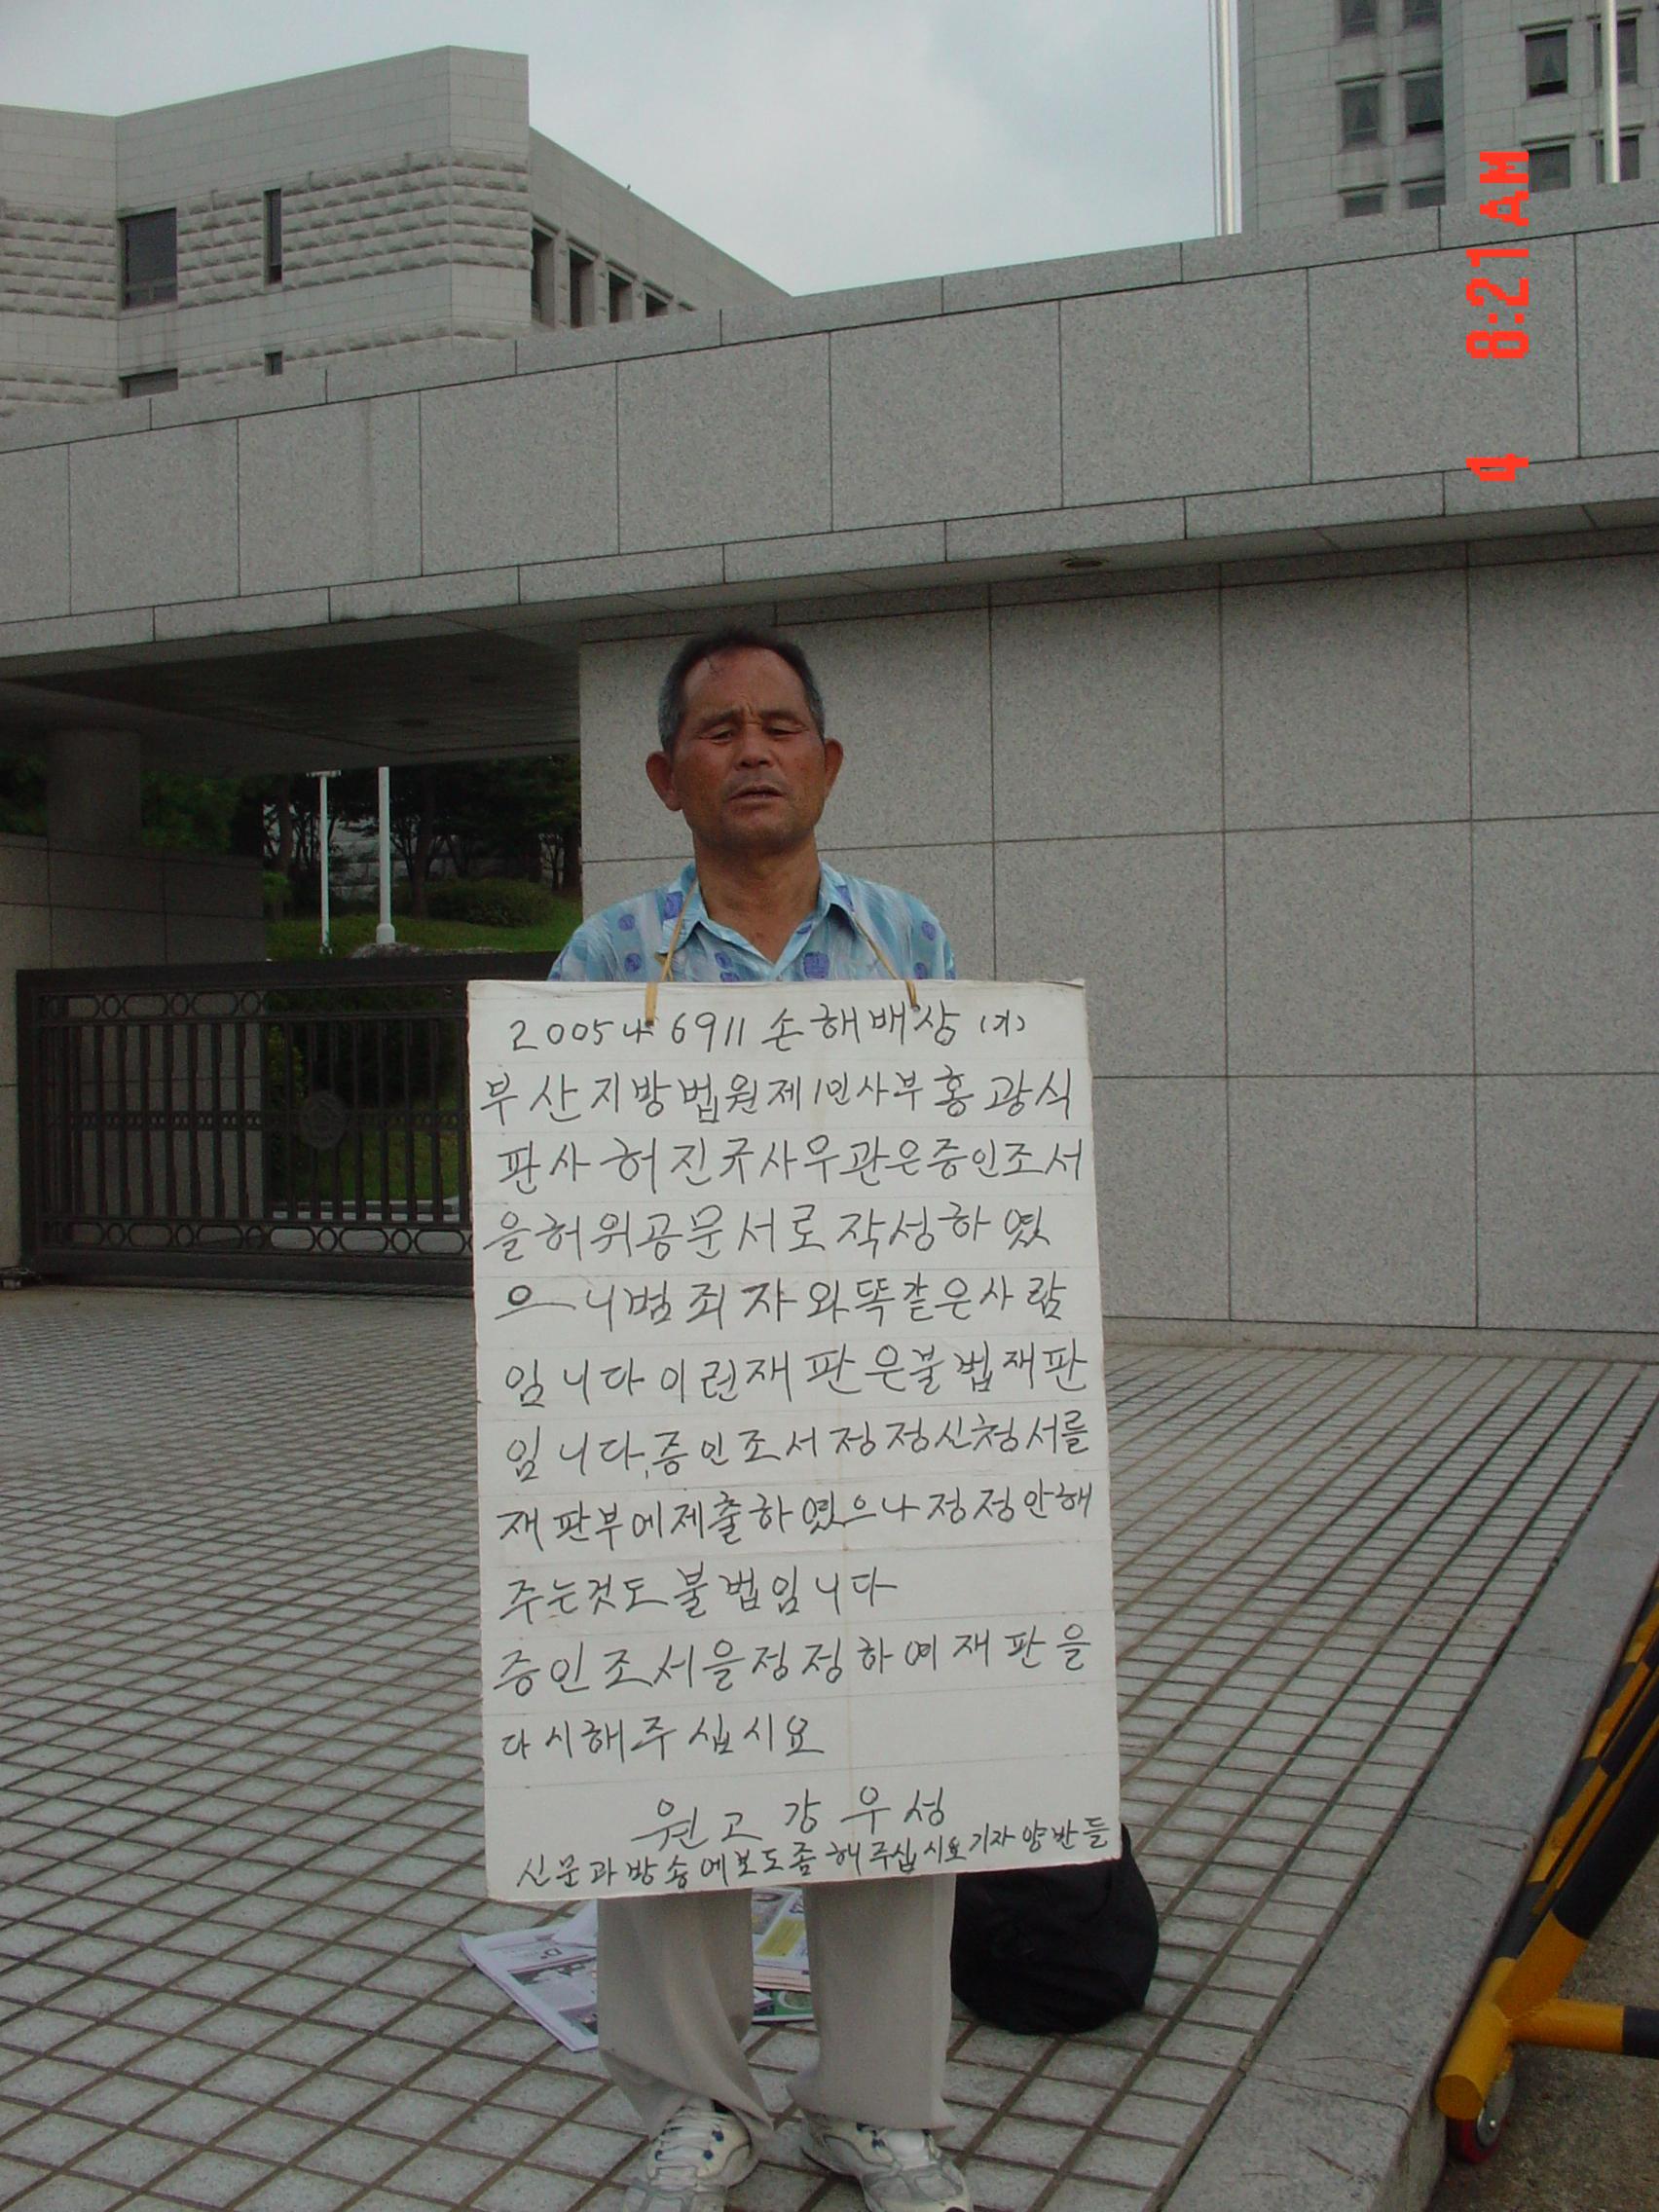 2005나 6911 손해배상 (기)
부산지방법원제1민사부홍광식
판사허진규사무관은증인조서
을허위공문서로작성하였
으니범죄자와똑같은사람
입니다이런재판은불법재판
입니다,증인조서정정신청서를
재판부에제출하였으나정정안해
주는것도불법입니다
증인조서을정정하여재판을
다시해주십시요
원고강우성
신문과방송에보도좀해주십시요기자양반들
4 8:21AM